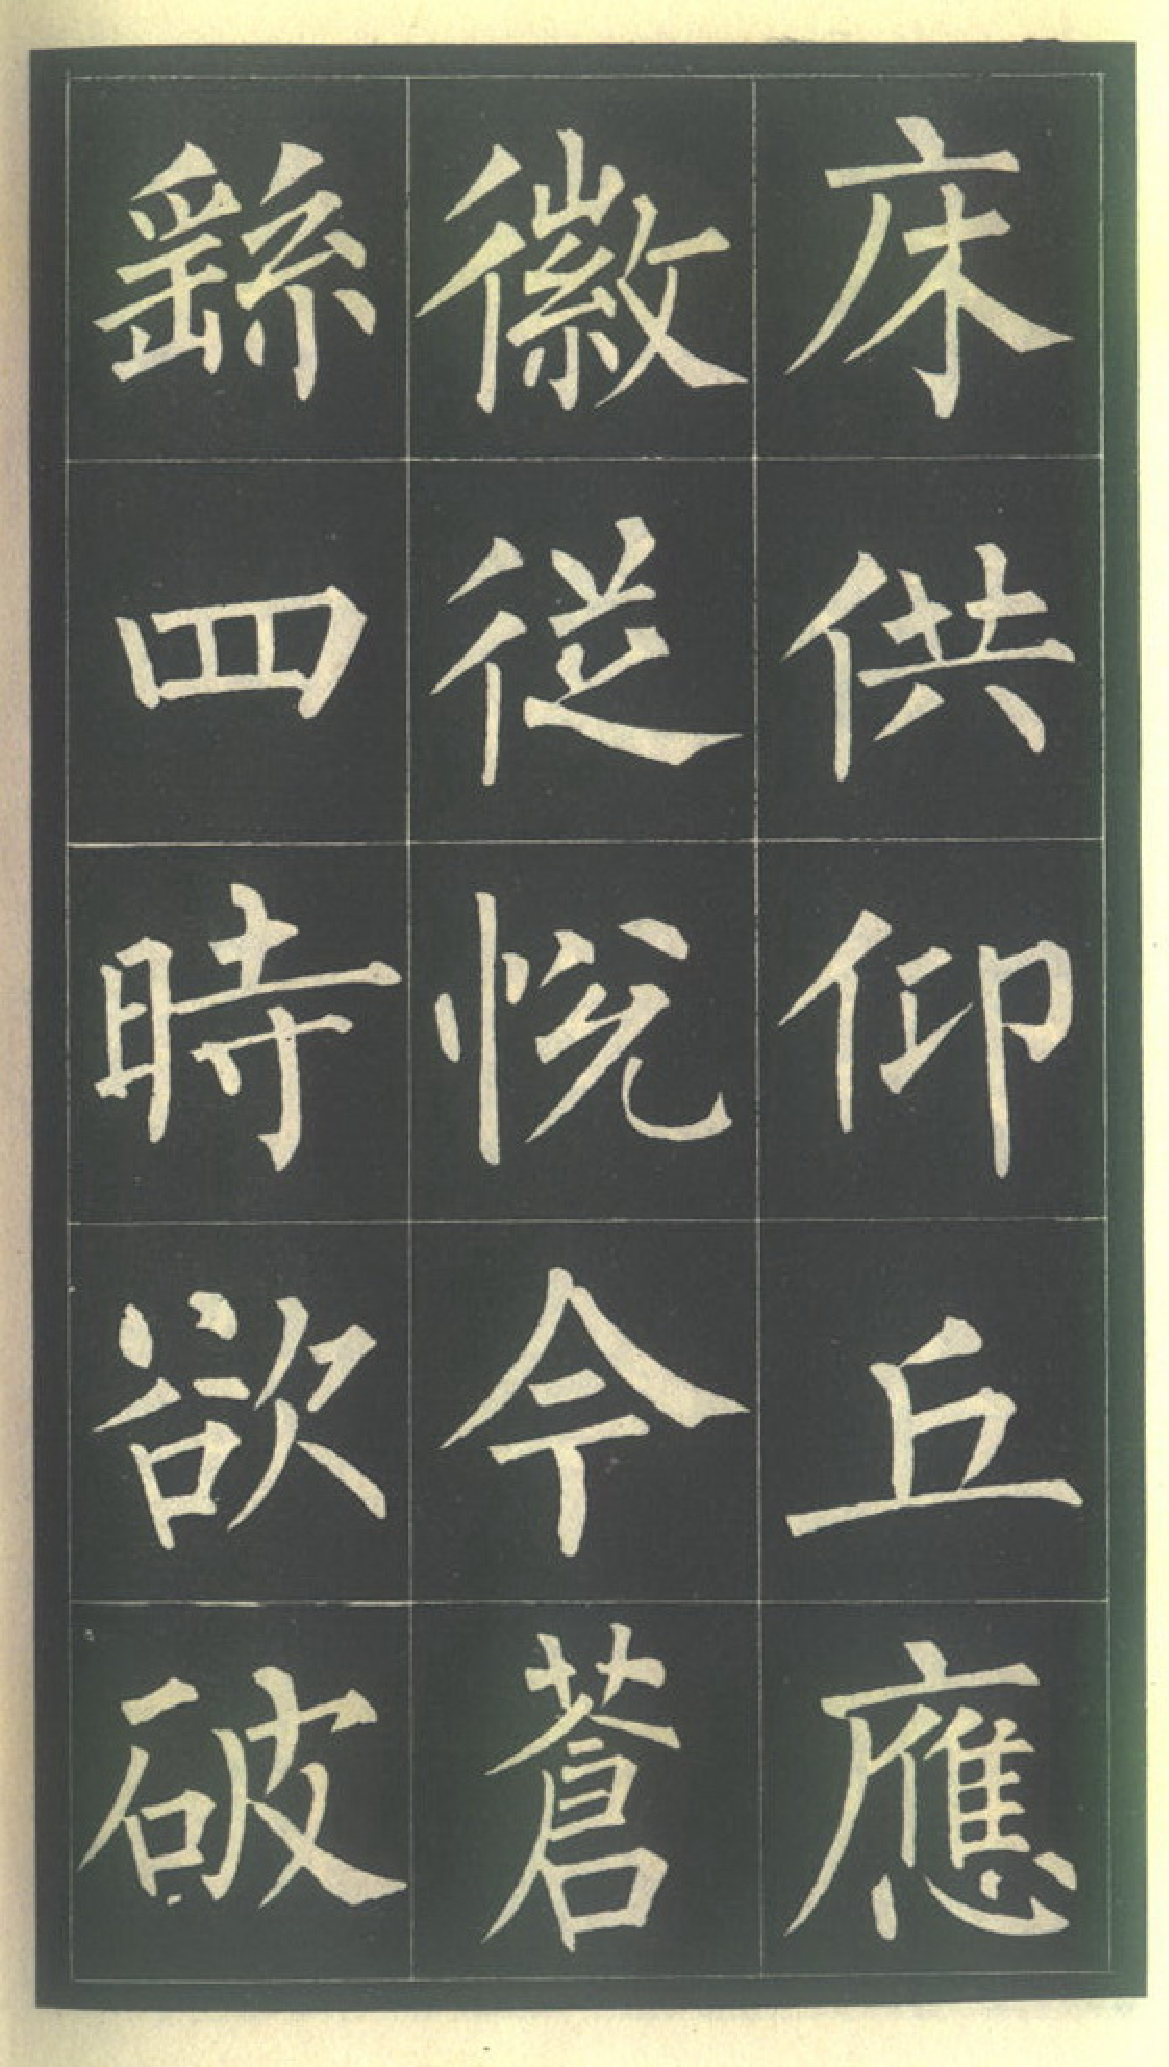 床供仰丘應
徽從悅今蒼
繇四時欲破